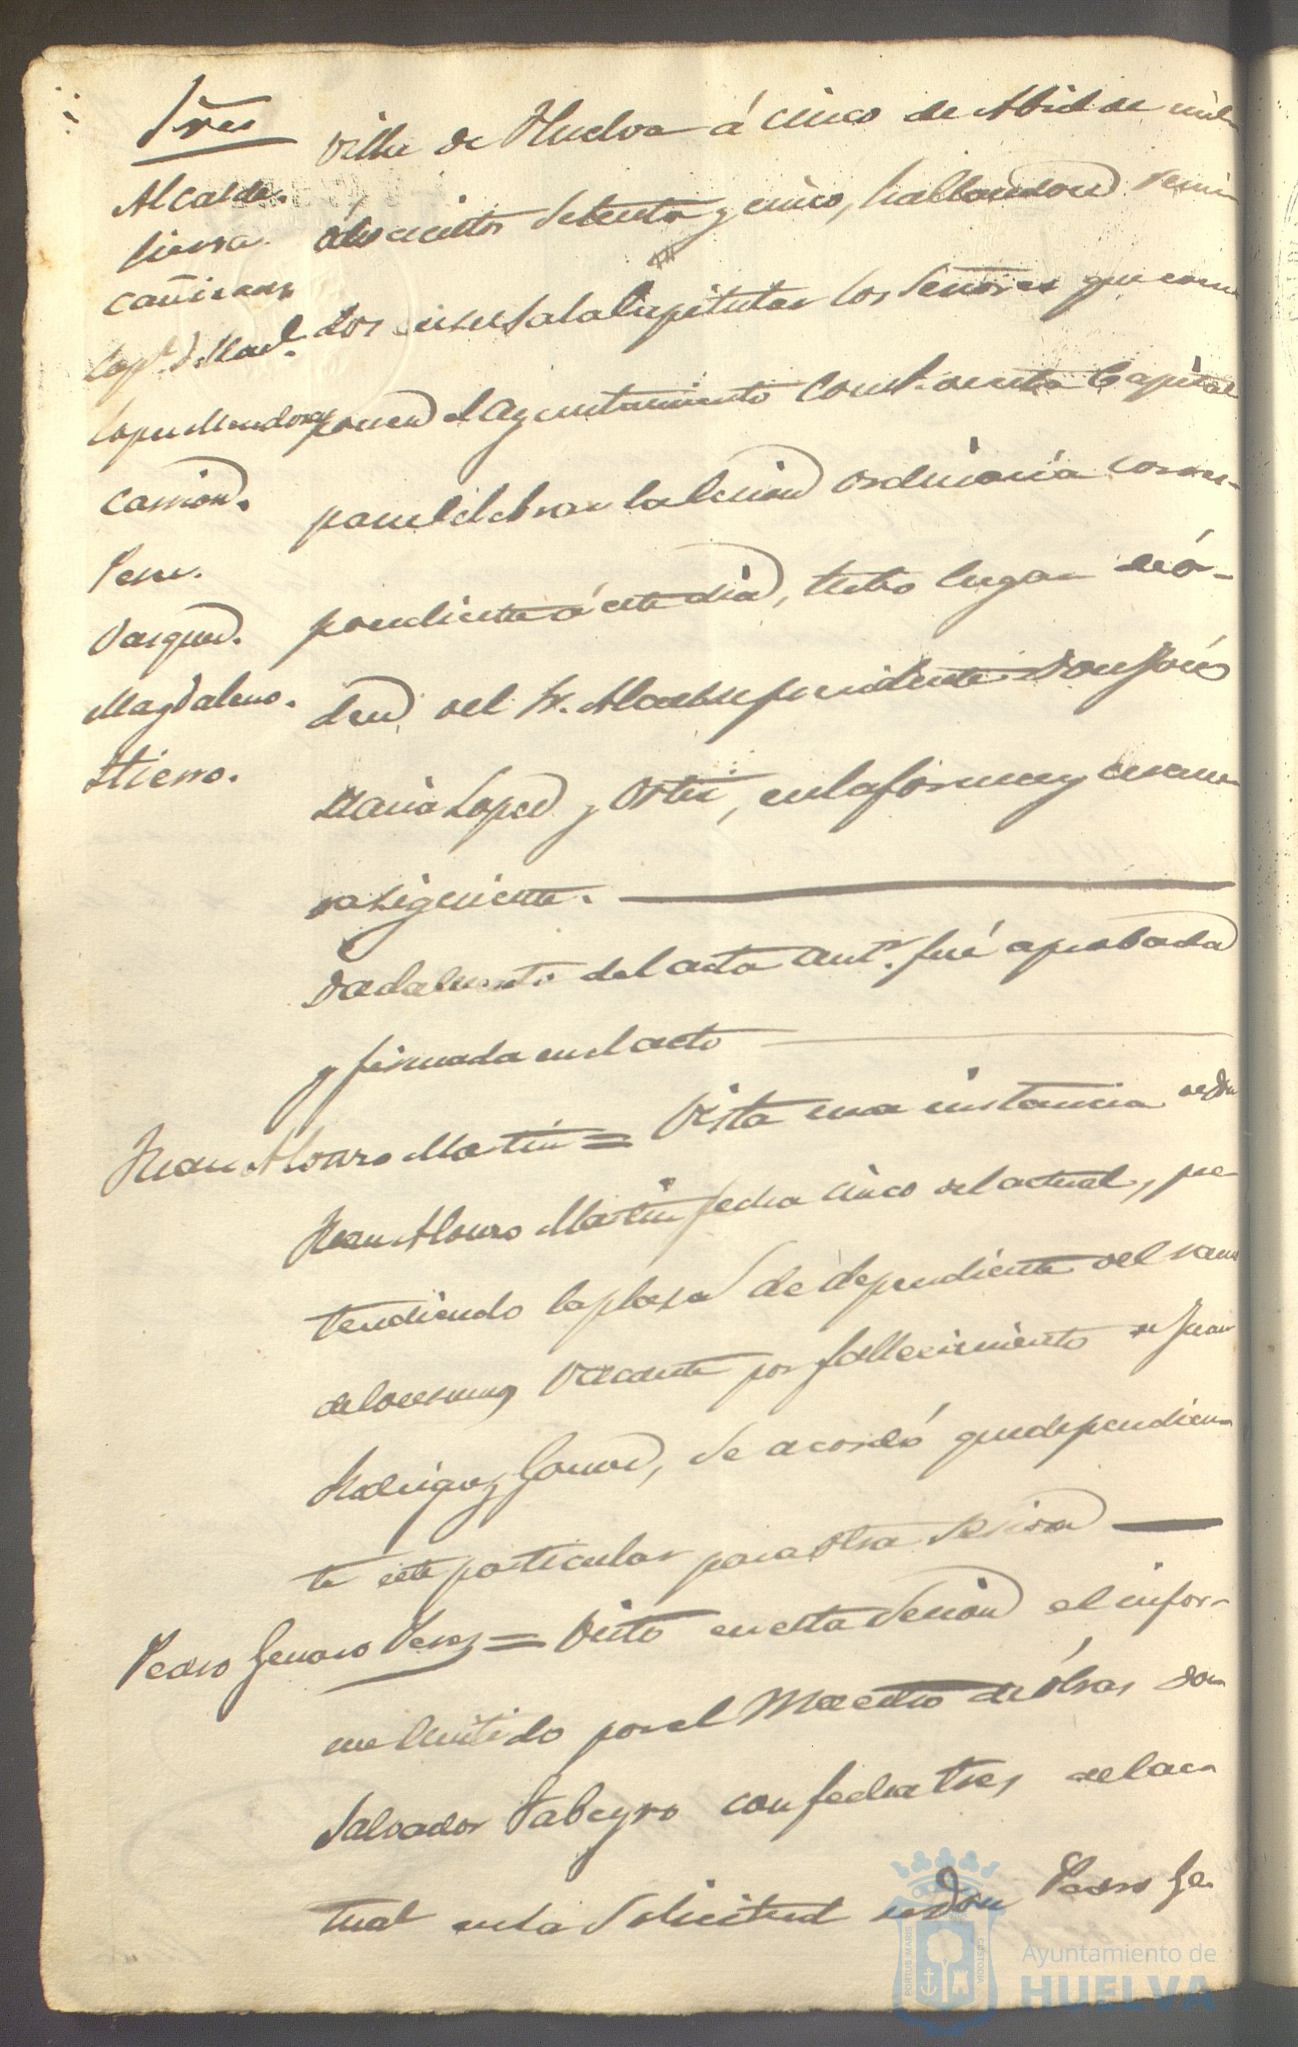 Sres
Alcalde.
Sierra.
Cañizares
Lopz. d Mad.
Lopez Mendoza
Carrion.
Perez.
Vazquez.
Magdaleno.
Hierro.
villa de Huelva á cinco de Abril de mil
ochocientos setenta y cinco, hallandose reuni
dos en su Sala Capitular los Señores que com
ponen el Ayuntamiento Const. de esta Capital
para celebrar la Sesion ordinaria corres-
pondiente á este dia, tubo lugar de ór-
den del Sr. Alcalde presidente Don José
Maria Lopez y Ortiz, en la forma y mane
ra siguiente.
Dada lectª. del acta antr. fué aprobada
y firmada en el acto
Juan Alonso Martin = Vista una instancia de Don
Juan Alonso Martin fecha cinco del actual, pre
tendiendo la plaza de dependiente del ramo
de consumos vacante por fallecimiento de Juan
Rodriguez Gomez, se acordó quede pendien
te este particular para otra Sesion
Pedro Genaro Perez = Visto en esta Sesion el infor-
me emitido por el Maestro de óbras Don
Salvador con fecha tres del ac
tual en la Solicitud de Don Pedro Ge
Ayuntamiento de
HUELVA
PORTUS MARIS
CUSTODIA